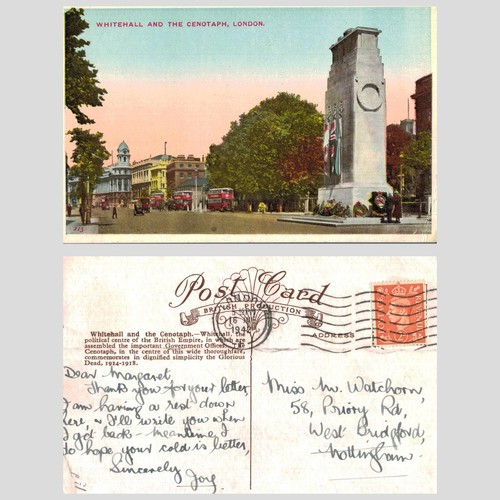 WHITEHALL AND THE CENOTAPH, LONDON.
215
Post Card
BRITISH PRODUCTION
ADDRESS
LONDON
16
194
Whitehall and the Cenotaph.—Whitehall, the
political centre of the British Empire, in which are
assembled the important Government Offices. The
Cenotaph, in the centre of this wide thoroughfare,
commemorates in dignified simplicity the Glorious
Dead, 1914-1918.
Dear Margaret
Thank you for your letter,
I am having a rest down
here, I'll write you when
I get back - meantime I
do hope your cold is better,
Sincerely
Joy
Miss M. Watchorn,
58, Priory Rd,
West Bridgford,
Nottingham.